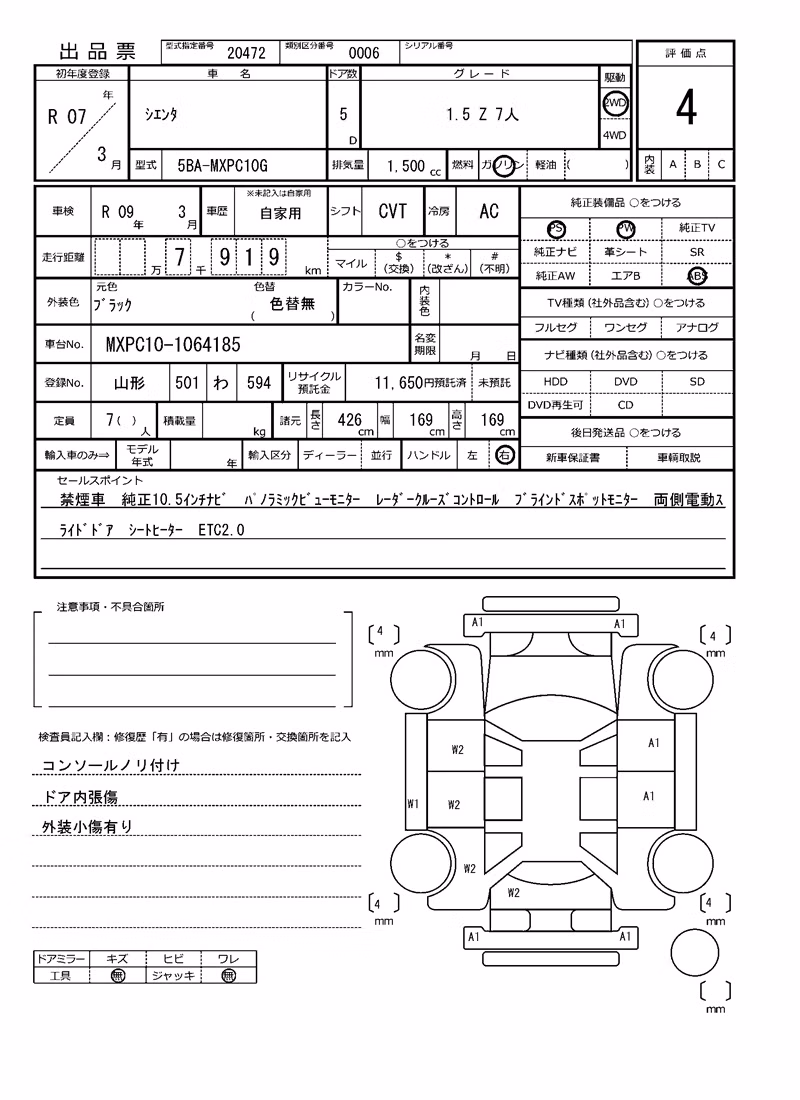 出品票 型式指定番号 20472 類別区分番号 0006 シリアル番号
評価点
4
内装 A B C
初年度登録 車名 ドア数 グレード 駆動
R 07 年 3 月 シエンタ 5 D 1.5 Z 7人 2WD
4WD
型式 5BA-MXPC10G 排気量 1,500 cc 燃料 ガソリン 軽油 ( )
車検 R 09 年 3 月 車歴 ※未記入は自家用 自家用 シフト CVT 冷房 AC
走行距離 万 7 千 9 1 9 km
○をつける
マイル $ (交換) * (改ざん) # (不明)
外装色 元色 ブラック 色替 ( 色替無 ) カラーNo. 内装色
車台No. MXPC10-1064185 名変期限 月 日
登録No. 山形 501 わ 594 リサイクル預託金 11,650円預託済 未預託
定員 7( ) 人 積載量 kg 諸元 長さ 426 cm 幅 169 cm 高さ 169 cm
輸入車のみ⇒ モデル年式 年 輸入区分 ディーラー 並行 ハンドル 左 右
純正装備品 ○をつける
PS PW 純正TV
純正ナビ 革シート SR
純正AW エアB ABS
TV種類(社外品含む) ○をつける
フルセグ ワンセグ アナログ
ナビ種類(社外品含む) ○をつける
HDD DVD SD
DVD再生可 CD
後日発送品 ○をつける
新車保証書 車輌取説
セールスポイント
禁煙車 純正10.5インチナビ パノラミックビューモニター レーダークルーズコントロール ブラインドスポットモニター 両側電動ス
ライドドア シートヒーター ETC2.0
注意事項・不具合箇所
検査員記入欄：修復歴「有」の場合は修復箇所・交換箇所を記入
コンソールノリ付け
ドア内張傷
外装小傷有り
ドアミラー キズ ヒビ ワレ
工具 無 ジャッキ 無
A1 A1
[ 4 ] mm [ 4 ] mm
W2 A1
W1 W2 A1
W2
W2
[ 4 ] mm [ 4 ] mm
A1 A1
[ ] mm